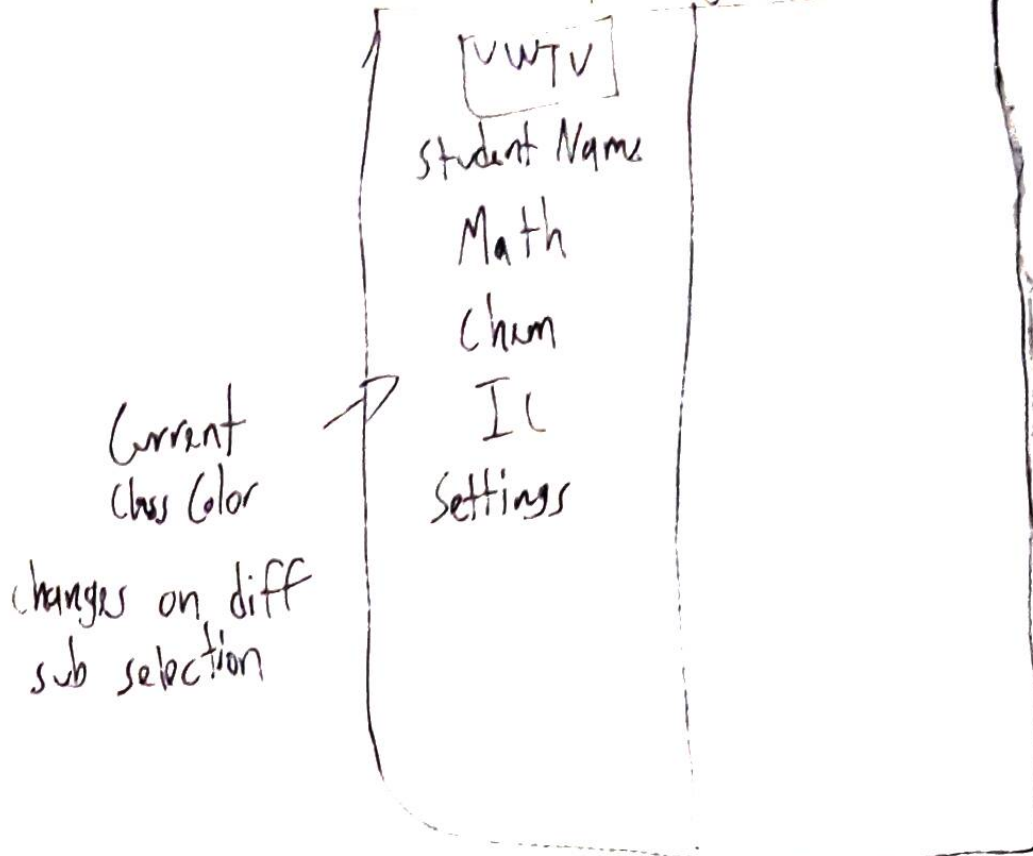 VWTV
Student Name
Math
Chem
IC
Settings
Current
Class Color
changes on diff
sub selection